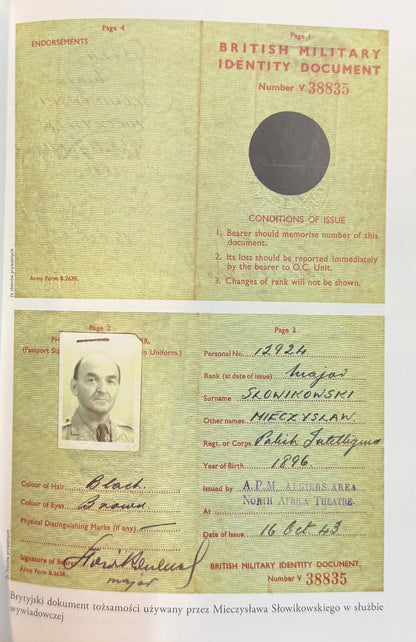 Page 4
ENDORSEMENTS
Army Form B.2638.
Page 1
BRITISH MILITARY
IDENTITY DOCUMENT
Number V 38835
CONDITIONS OF ISSUE
1. Bearer should memorise number of this
document.
2. Its loss should be reported immediately
by the bearer to O.C. Unit.
3. Changes of rank will not be shown.
Ze zbiorów prywatnych
Page 2
(Passport Siz in Uniform.)
Colour of Hair Black.
Colour of Eyes Brown
Physical Distinguishing Marks (if any) —
Signature of Bearer
major
Army Form B.2638.
Page 3
Personal No. 12924
Rank (at date of issue) Major
Surname SŁOWIKOWSKI
Other names MIECZYSŁAW.
Regt. or Corps. Polish Intelligence
Year of Birth 1896.
Issued by A.P.M. ALGIERS AREA
NORTH AFRICA THEATRE
Date of Issue 16 Oct 43
BRITISH MILITARY IDENTITY DOCUMENT,
Number V 38835
Ze zbiorów prywatnych
Brytyjski dokument tożsamości używany przez Mieczysława Słowikowskiego w służbie
wywiadowczej